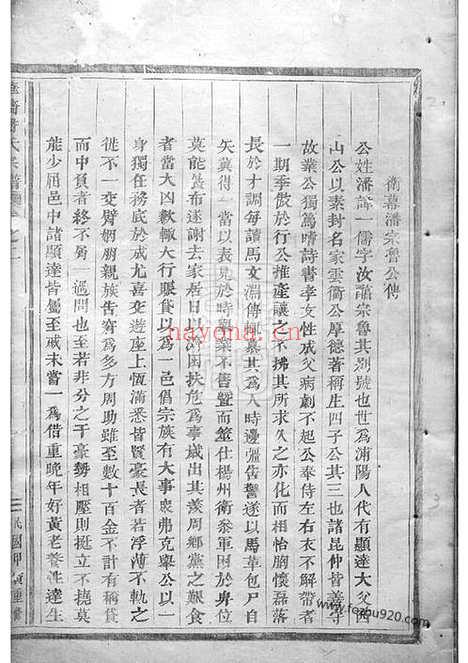 衛幕潘宗魯公傳
公姓潘諱一儒字汝 宗魯其別號也世為浦陽人代有顯達大父西
山公以素封名家雲衢公厚德著稱生四子公其三也諸昆仲皆善守
故業公獨篤嗜詩書孝友性成父病劇不起公奉侍左右衣不解帶者
一期季傲於行公推產讓之不拂其所求久之亦化而相得懷磊落
長於才調每讀馬文淵傳 慕其為人時邊 告警遂以馬革包尸自
矢冀得一當以表見於時 不售 而仕楊州衛叅軍困於 位
莫能 布遂謝去家居日 困扶危為事歲出其羨周鄉黨之艱食
者當大凶歉輒大行賑貸以為一邑倡宗族有大事衆弗克舉公以一
身獨任務底於成尤喜交遊座上恆滿悉皆賢豪長者若浮薄不軌之
徒不一交臂姻朋親族告窘為多方周助雖至數十百金不計有稱貸
而中負者終不一過問也至若非分之干豪勢相壓則挺立不撓莫
能少屈邑中諸顯達皆屬至戚未嘗一為借重晚年好黃老養性達生
民國甲 重修
nayona.cn
www.fozhu920.com